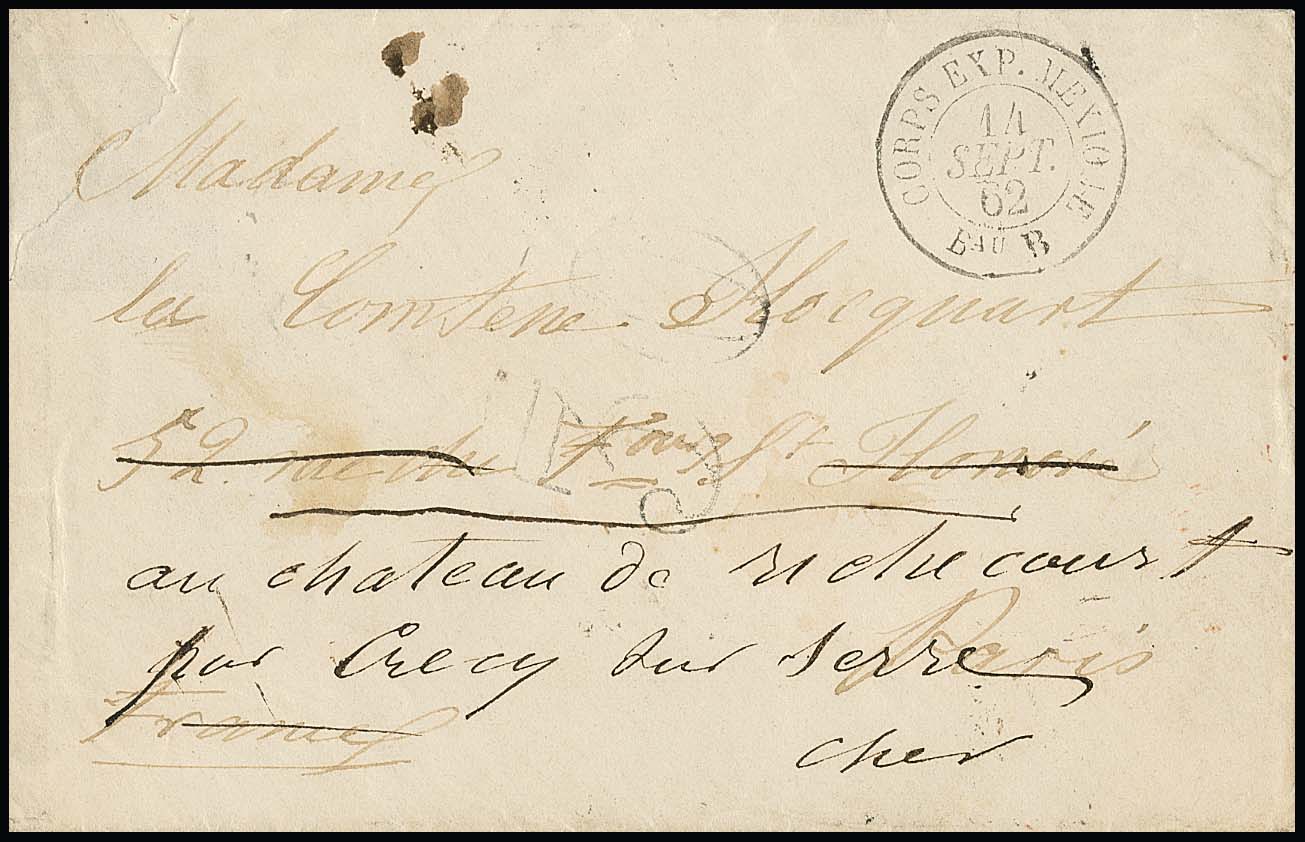 CORPS EXP. MEXIQUE
14
SEPT.
62
Bau B
Madame
la Comtesse Hocquart
52 rue du Faubg St Honoré
au chateau de richecourt
Paris
par Crecy sur serre
France
cher